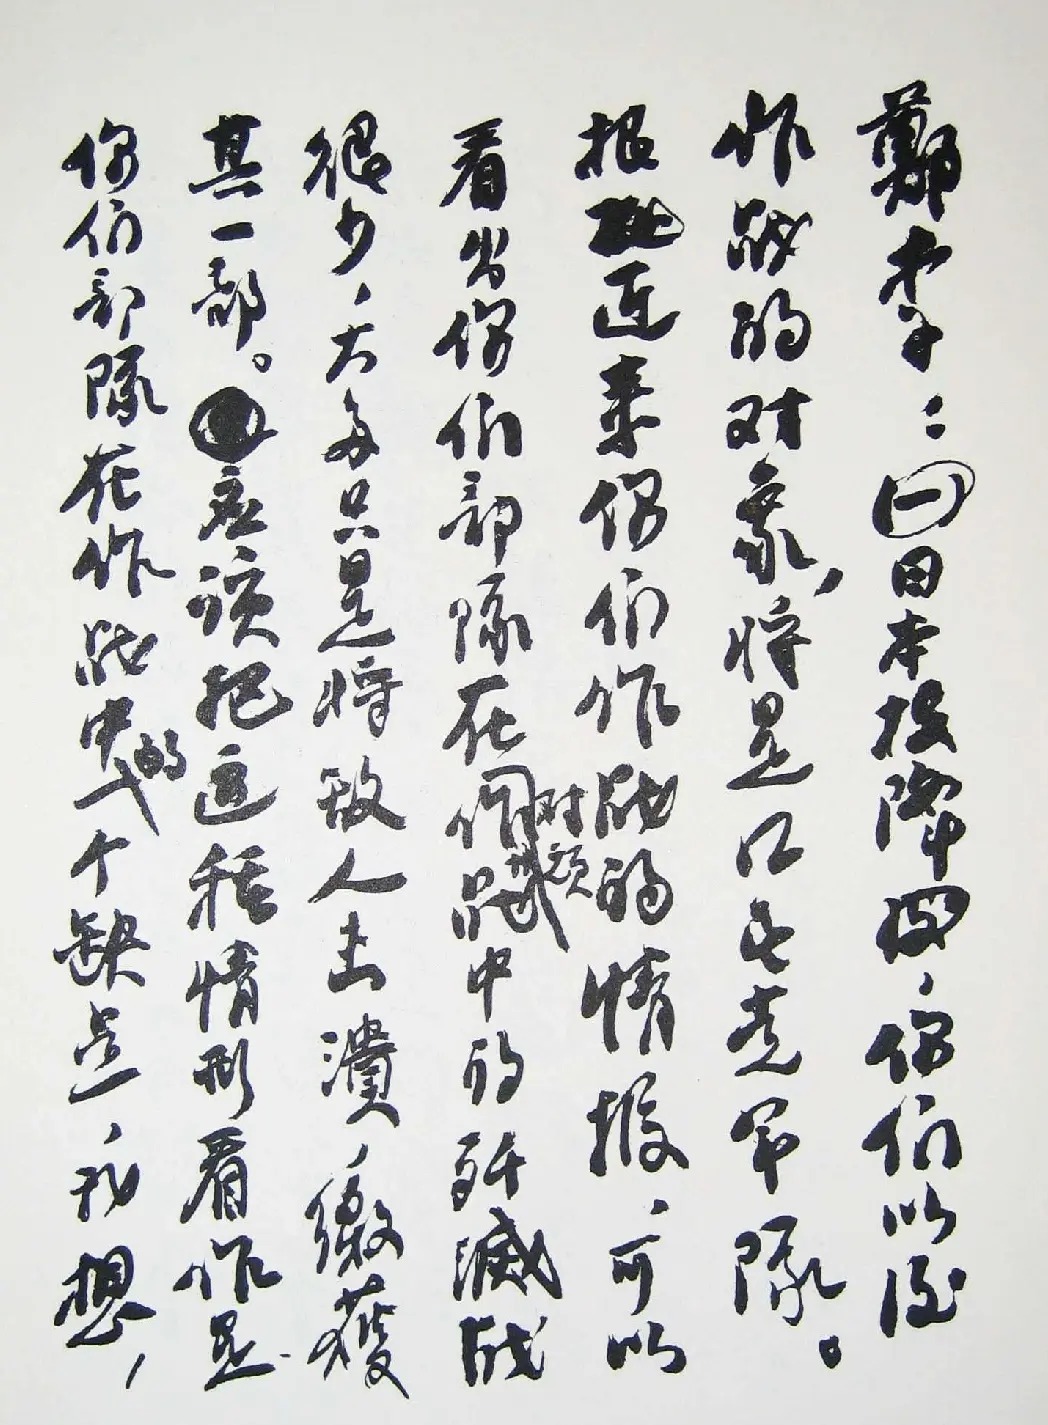 鄭李：㈠日本投降、你们以后
作战的对象，将是国民党军队。
根据近来你们作战的情报、可以
看出你们部队在对顽作战中的歼滅战
很少、大多只是将敌人击潰、缴獲
其一部。应该把这种情形看作是
你们部隊在作战中的一个缺点、我想，